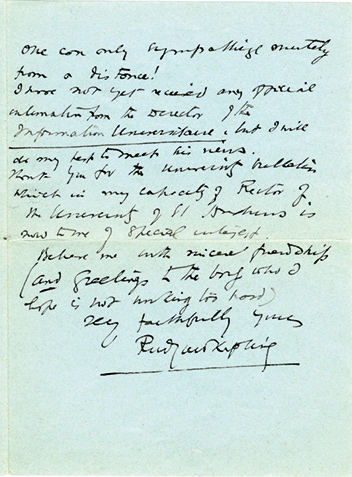 One can only sympathize mutely
from a distance!
I have not yet received any official
intimation from the Director of the
Information Universitaire, but I will
do my best to meet his views.
Thank you for the University Bulletin
which in my capacity of Rector of
the University of St Andrews is
now to me of special interest.
Believe me with sincere friendship
(and greetings to the boy who I
hope is not working too hard)
Very faithfully yours
Rudyard Kipling